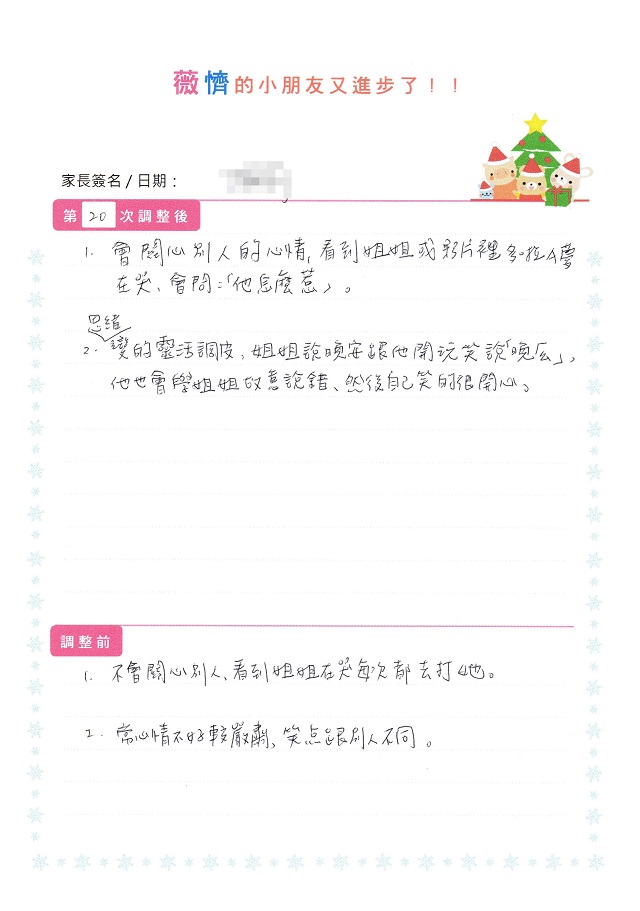 薇儕的小朋友又進步了！！
家長簽名 / 日期：
第 20 次調整後
1. 會關心別人的心情,看到姐姐或影片裡多拉A夢
在哭、會問:「他怎麼惹」。
思維
2. 變的靈活調皮,姐姐說晚安跟他開玩笑說「晚ㄙ」,
他也會學姐姐故意說錯、然後自己笑的很開心。
調整前
1. 不會關心別人、看到姐姐在哭每次都去打她。
2. 常心情不好較嚴肅、笑点跟別人不同。